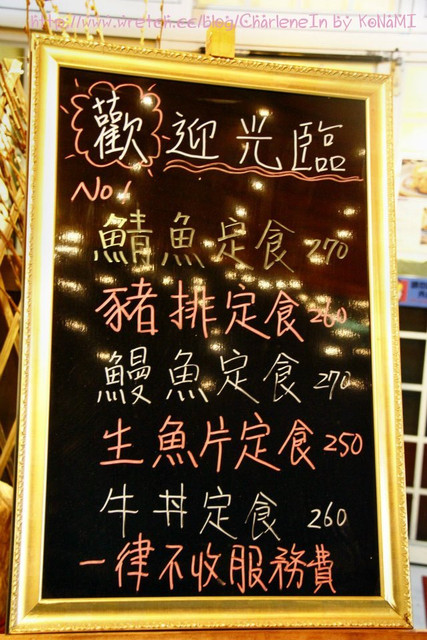 http://www.wretch.cc/blog/CharleneIn By KoNaMI
歡迎光臨
No 1
鯖魚定食 270
豬排定食 260
鰻魚定食 270
生魚片定食 250
牛丼定食 260
一律不收服務費